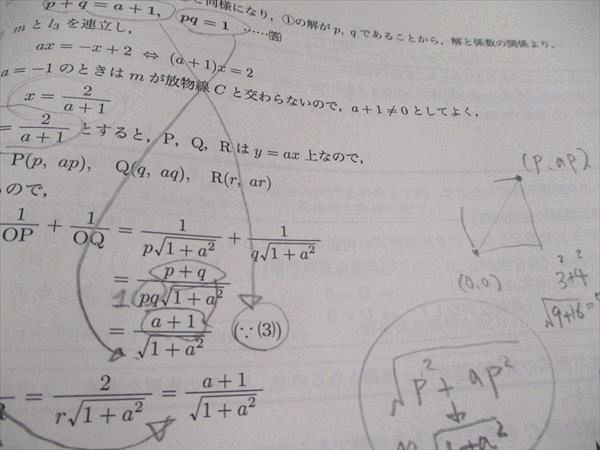 p + q = a + 1, pq = 1 ……(答)
同様になり,①の解が p, q であることから,解と係数の関係より,
m と l₃ を連立し,
ax = −x + 2 ⇔ (a + 1)x = 2
a = −1 のときは m が放物線 C と交わらないので,a + 1 ≠ 0 としてよく,
x = 2/(a + 1)
= 2/(a + 1) とすると,P, Q, R は y = ax 上なので,
P(p, ap), Q(q, aq), R(r, ar)
ので,
1/OP + 1/OQ = 1/(p√(1 + a²)) + 1/(q√(1 + a²))
= (p + q)/(pq√(1 + a²))
1
= (a + 1)/√(1 + a²) (∵ (3))
= 2/(r√(1 + a²)) = (a + 1)/√(1 + a²)
(P, aP)
(0,0)
3²+4²
√9+16 =
√P²+aP²
√1+a²